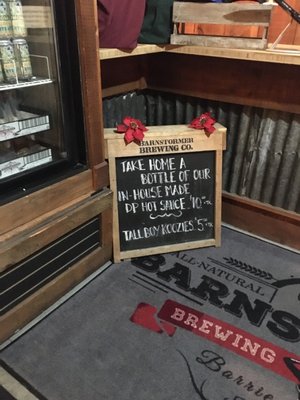 BARNSTORMER
BREWING CO.
TAKE HOME A
BOTTLE OF OUR
IN-HOUSE MADE
DP HOT SAUCE $10
TALL BOY KOOZIES $5
ALL-NATURAL
BARNS
BREWING
Barrie